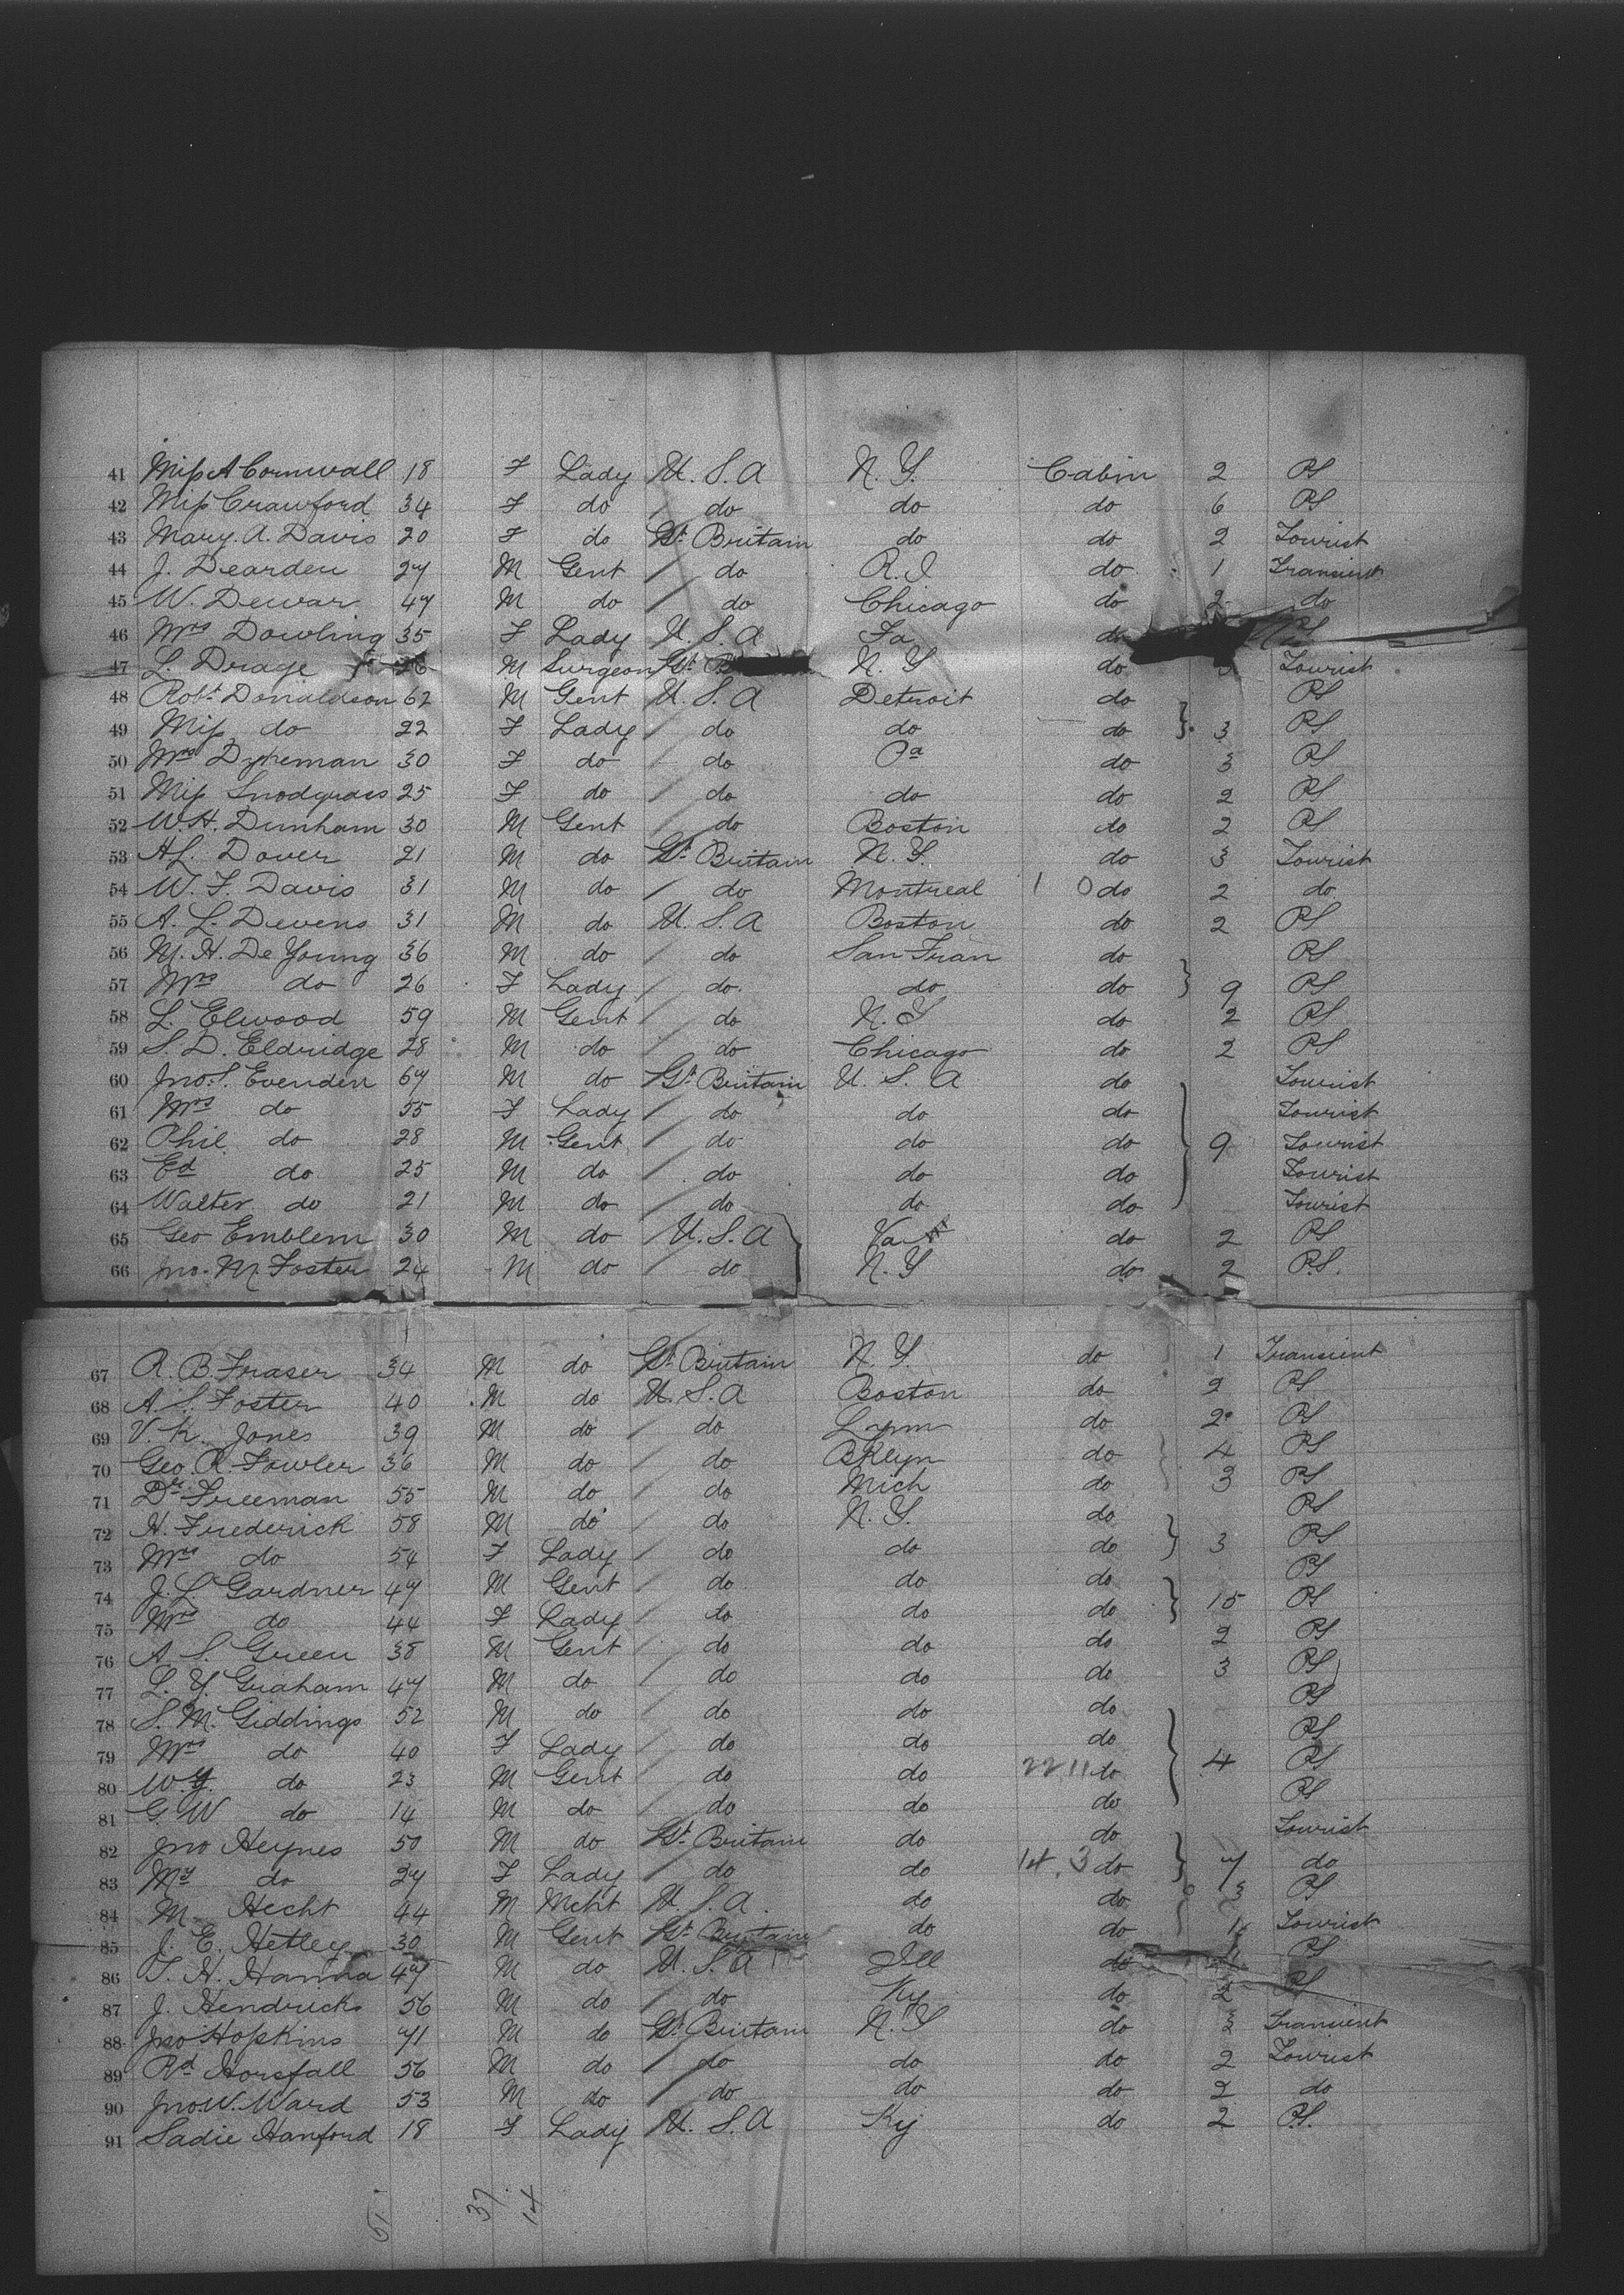 41 Miss A Cornwall 18 F Lady U.S.A N.Y. Cabin 2 PS
42 Miss Crawford 34 F do do do do 6 PS
43 Mary. A. Davis 20 F do Gt Britain do do 2 Tourist
44 J. Dearden 27 M Gent do R.I do 1 Transient
45 W. Dewar 47 M do do Chicago do 2 do
46 Mrs Dowling 35 F Lady U.S.A do PS
47 L. Drage 26 M Surgeon Gt B N.Y do 3 Tourist
48 Robt Donaldson 62 M Gent U.S.A Detroit do PS
49 Miss do 22 F Lady do do do } 3 PS
50 Mrs Dykeman 30 F do do Pa do 3 PS
51 Miss Snodgrass 25 F do do do do 2 PS
52 W.H. Dunham 30 M Gent do Boston do 2 PS
53 A L. Dover 21 M do Gt Britain N.Y. do 3 Tourist
54 W. F. Davis 31 M do do Montreal 1 0 do 2 do
55 A. L. Devens 31 M do U.S.A Boston do 2 PS
56 M. H. De Young 36 M do do San Fran do PS
57 Mrs do 26 F Lady do do do } 9 PS
58 L. Elwood 59 M Gent do N.Y do 2 PS
59 S. D. Eldridge 28 M do do Chicago do 2 PS
60 Jno. S. Evenden 67 M do Gt Britain U.S.A do Tourist
61 Mrs do 55 F Lady do do do Tourist
62 Phil do 28 M Gent do do do } 9 Tourist
63 Ed do 25 M do do do do Tourist
64 Walter do 21 M do do do do Tourist
65 Geo Emblem 30 M do U.S.A Va do 2 PS
66 Jno. M Foster 24 M do do N.Y do 2 P.S.
67 R. B. Fraser 34 M do Gt Britain N.Y. do 1 Transient
68 A. S. Foster 40 M do U.S.A Boston do 2 PS
69 V. K. Jones 39 M do do Lynn do 2 PS
70 Geo. R. Fowler 36 M do do BKlyn do 4 PS
71 Dr Freeman 55 M do do Mich do 3 PS
72 H. Frederick 58 M do do N.Y. do PS
73 Mrs do 54 F Lady do do do } 3 PS
74 J. L. Gardner 47 M Gent do do do PS
75 Mrs do 44 F Lady do do do } 15 PS
76 A. S. Green 38 M Gent do do do 2 PS
77 L. Y. Graham 47 M do do do do 3 PS
78 S. M. Giddings 52 M do do do do PS
79 Mrs do 40 F Lady do do do PS
80 W.G. do 23 M Gent do do 22 11 do } 4 PS
81 G. W do 14 M do do do do PS
82 Jno Heynes 50 M do Gt Britain do do Tourist
83 do 27 F Lady do do 14, 3 do } 7 do
84 M. Hecht 44 M Mcht U.S.A. do do 3 PS
85 J. E. Hetley 30 M Gent Gt Britain do do Tourist
86 T. H. Hanna 47 M do U.S.A Ill do PS
87 J. Hendricks 56 M do do Ky do 2 PS
88 Jno Hopkins 71 M do Gt Britain N.Y do 3 Transient
89 Rd Horsfall 56 M do do do do 2 Tourist
90 Jno. W. Ward 53 M do do do do 2 do
91 Sadie Hanford 18 F Lady U.S.A Ky do 2 P.S.
51 37 14